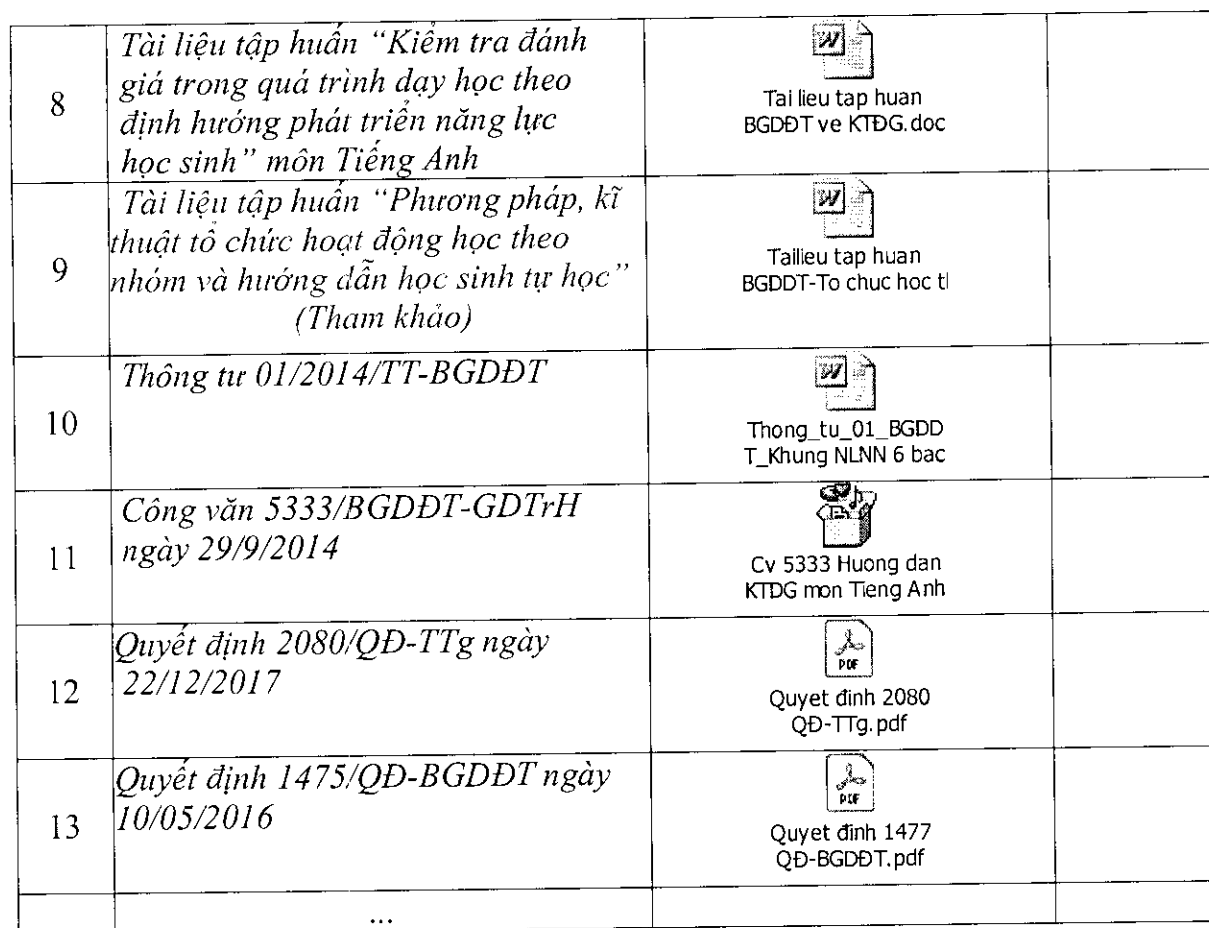 8
Tài liệu tập huấn “Kiểm tra đánh
giá trong quá trình dạy học theo
định hướng phát triển năng lực
học sinh” môn Tiếng Anh
W
Tai lieu tap huan
BGDĐT ve KTĐG.doc
9
Tài liệu tập huấn “Phương pháp, kĩ
thuật tổ chức hoạt động học theo
nhóm và hướng dẫn học sinh tự học”
(Tham khảo)
W
Tailieu tap huan
BGDDT-To chuc hoc tl
10
Thông tư 01/2014/TT-BGDĐT
W
Thong_tu_01_BGDD
T_Khung NLNN 6 bac
11
Công văn 5333/BGDĐT-GDTrH
ngày 29/9/2014
Cv 5333 Huong dan
KTDG mon Tieng Anh
12
Quyết định 2080/QĐ-TTg ngày
22/12/2017
PDF
Quyet đinh 2080
QĐ-TTg.pdf
13
Quyết định 1475/QĐ-BGDĐT ngày
10/05/2016
PDF
Quyet đinh 1477
QĐ-BGDĐT.pdf
...